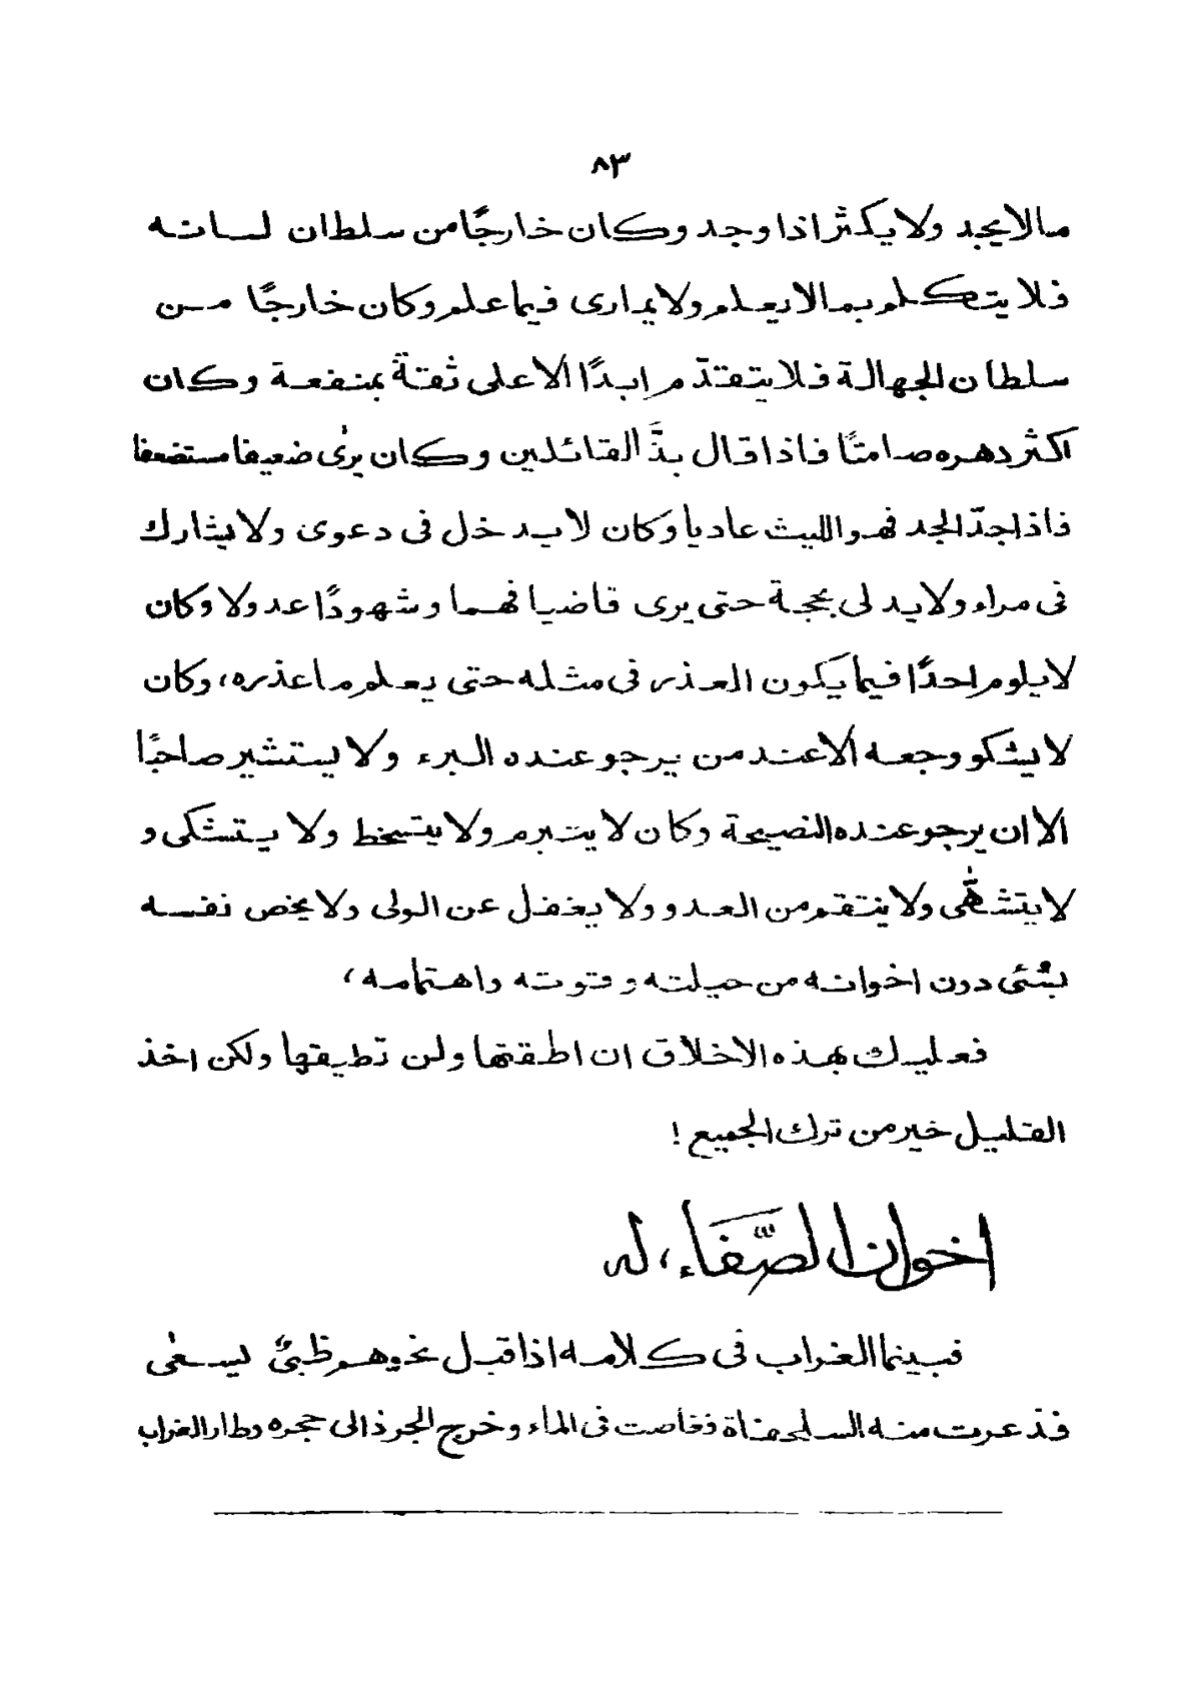 ٨٣
مالا يجد ولا يكثر اذا وجد وكان خارجًا من سلطان لسانه
فلا يتكلم بما لا يعلم ولا يمارى فيما علم وكان خارجًا من
سلطان الجهالة فلا يتقدّم ابدًا الا على ثقةٍ بمنفعة وكان
اكثر دهره صامتًا فاذا قال بذَّ القائلين وكان يرىٰ ضعيفا مستضعفا
فاذا جدّ الجد فهو الليث عاديا وكان لا يدخل فى دعوى ولا يشارك
فى مراء ولا يدلى بحجة حتى يرى قاضيا فهما وشهودًا عدولا وكان
لا يلوم احدًا فيما يكون العذر فى مثله حتى يعلم ما عذره، وكان
لا يشكو وجعه الا عند من يرجو عنده البرء ولا يستشير صاحبًا
الا ان يرجو عنده النصيحة وكان لا يتبرم ولا يتسخط ولا يتشكى و
لا يتشهّٰى ولا ينتقم من العدو ولا يغفل عن الولى ولا يخص نفسه
بشئ دون اخوانه من حيلته وقوته واهتمامه،
فعليك بهذه الاخلاق ان اطقتها ولن تطيقها ولكن اخذ
القليل خير من ترك الجميع!
اخوان الصَّفَاء، له
فبينما الغراب فى كلامه اذا قبل نحوهم ظبىٌ يسعىٰ
فذعرت منه السلحفاة فغاصت فى الماء وخرج الجرذ الى حجره وطار الغراب